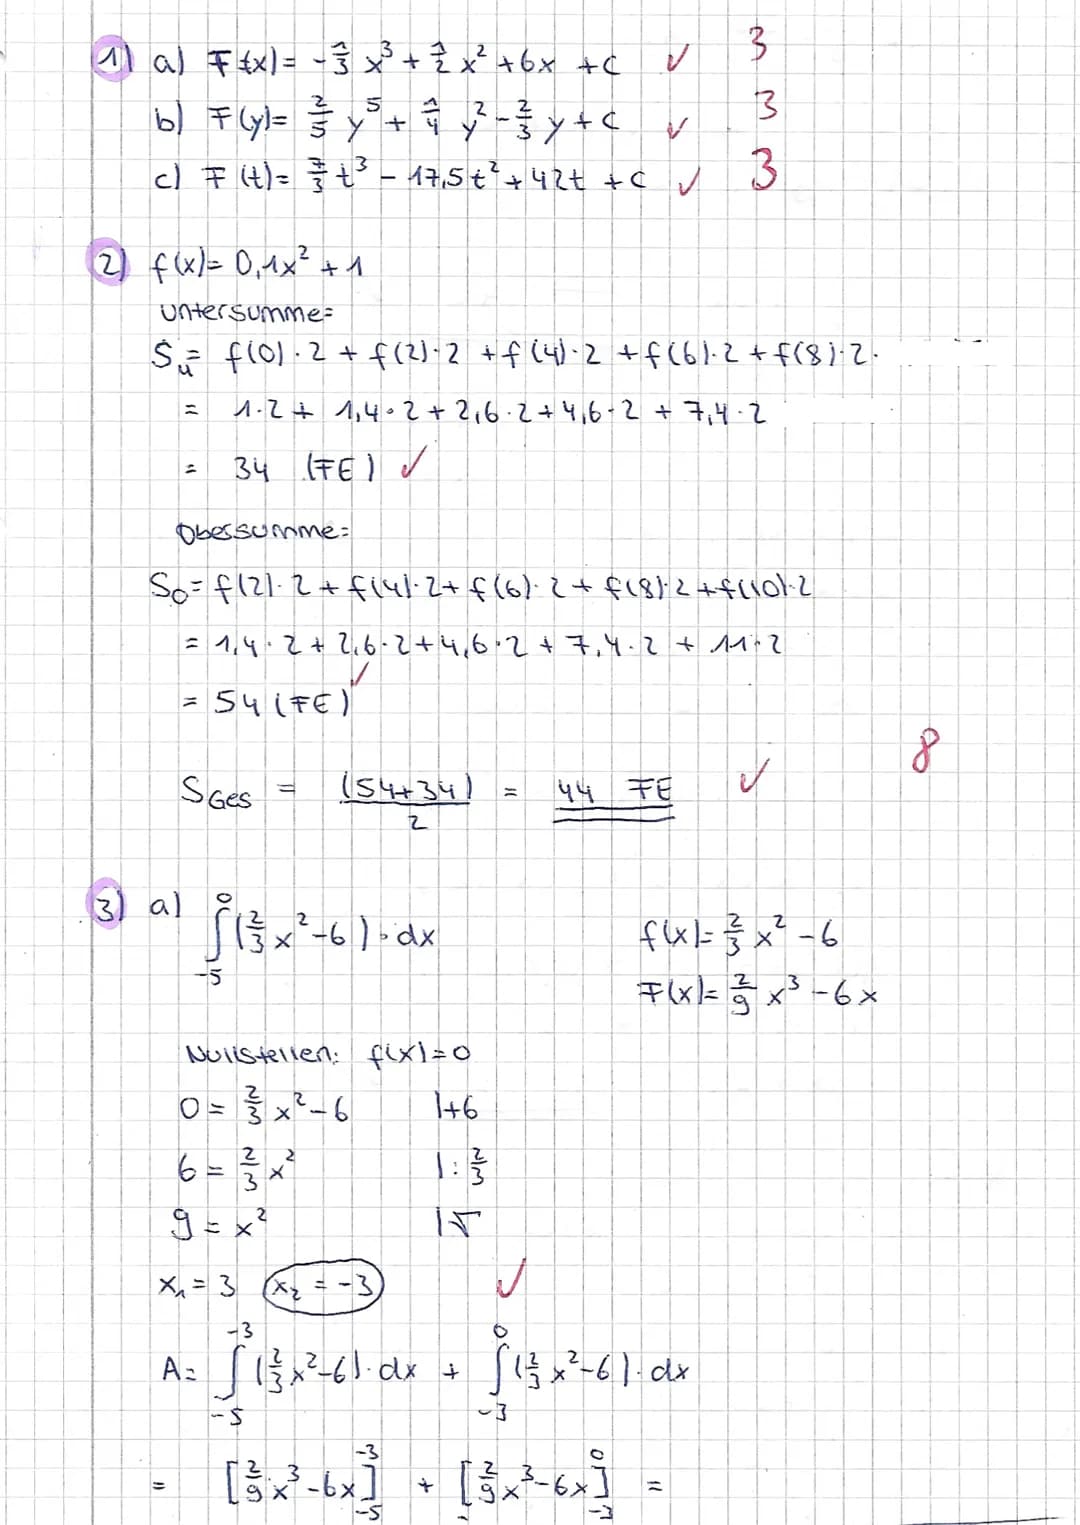 1) a) F(x)= -1/3 x³ + 1/2 x² + 6x + c ✓ 3
b) F(y)= 2/5 y⁵ + 1/4 y² - 2/3 y + c ✓ 3
c) F(t)= 7/3 t³ - 17,5t² + 42t + c ✓ 3
2) f(x)= 0,1x² + 1
Untersumme=
Su= f(0)·2 + f(2)·2 + f(4)·2 + f(6)·2 + f(8)·2.
= 1·2 + 1,4·2 + 2,6·2 + 4,6·2 + 7,4·2
= 34 (FE) ✓
Obersumme=
SO= f(2)·2 + f(4)·2 + f(6)·2 + f(8)·2 + f(10)·2
= 1,4·2 + 2,6·2 + 4,6·2 + 7,4·2 + 11·2
= 54 (FE) ✓
SGes = (54+34)/2 = 44 FE ✓ 8
3) a) ∫₋₅⁰ (2/3 x² - 6)·dx f(x)= 2/3 x² - 6
F(x)= 2/9 x³ - 6x
Nullstellen: f(x)=0
0 = 2/3 x² - 6 |+6
6 = 2/3 x² |: 2/3
9 = x² |√
x₁ = 3 x₂ = -3 ✓
A= ∫₋₅⁻³ (2/3 x² - 6)·dx + ∫₋₃⁰ (2/3 x² - 6)·dx
= [2/9 x³ - 6x]₋₅⁻³ + [2/9 x³ - 6x]₋₃⁰ =